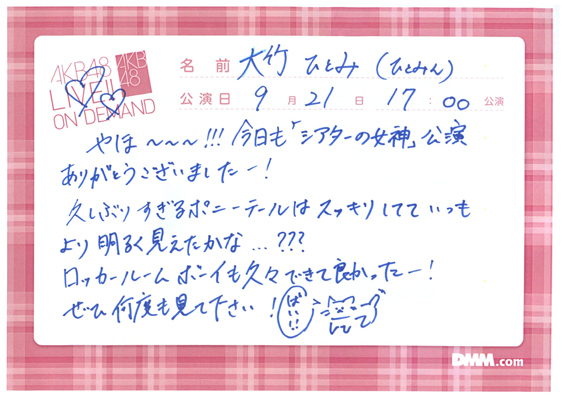 AKB48
LIVE!!
ON DEMAND
AKB
48
名前 大竹 ひとみ (ひとみん)
公演日 9月21日 17:00公演
やほ〜〜〜!!! 今日も「シアターの女神」公演
ありがとうございましたー!
久しぶりすぎるポニーテールはスッキリしてていつも
より明るく見えたかな…???
ロッカールームボーイも久々できて良かったー!
ぜひ何度も見て下さい!
ばいい!
DMM.com